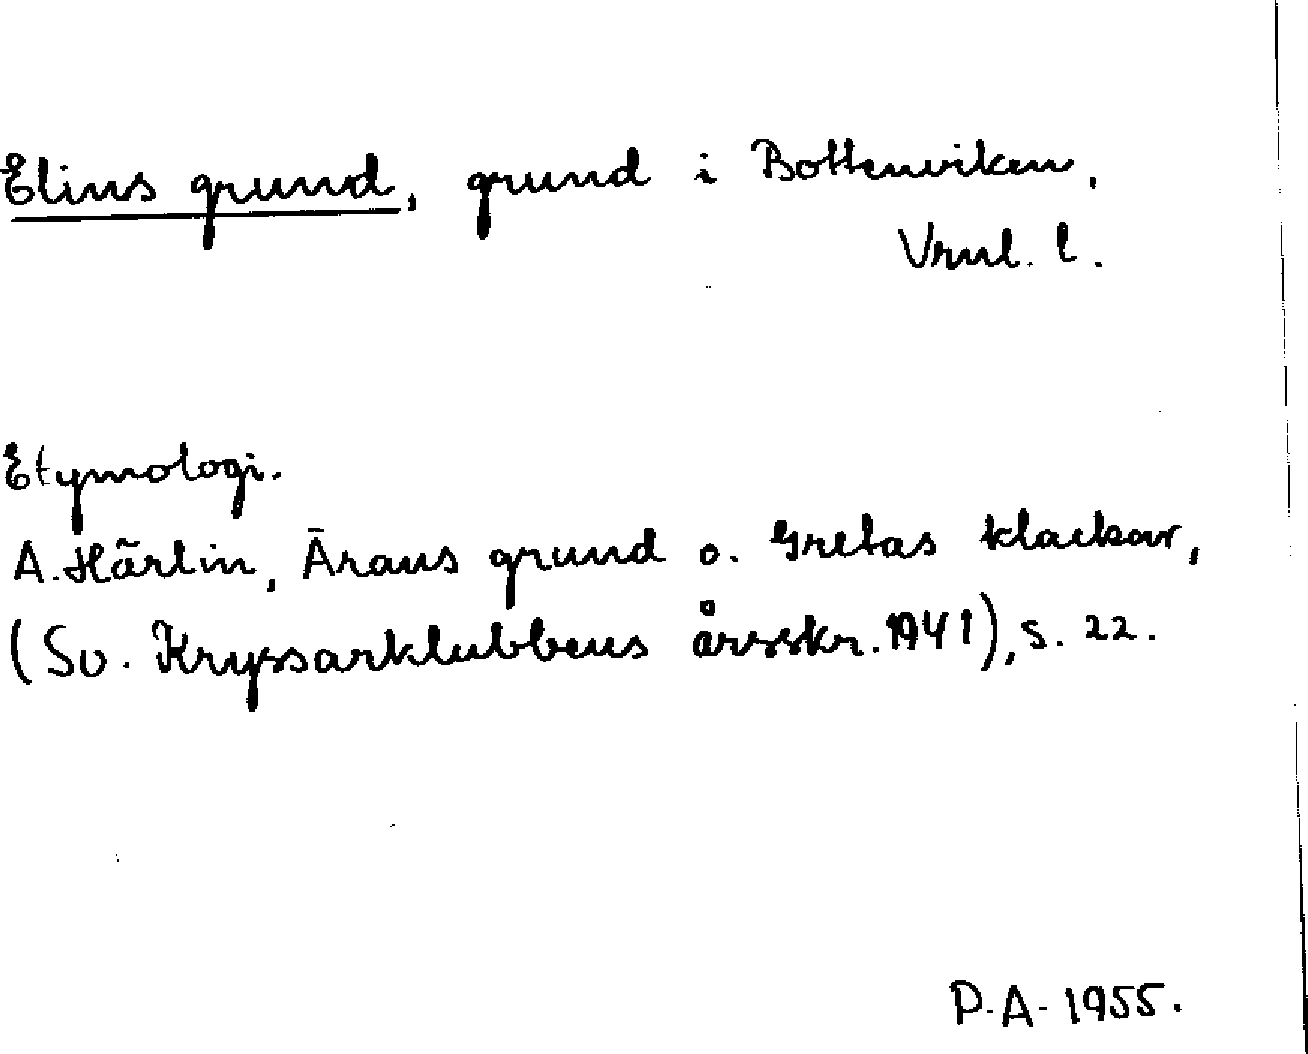 Elins grund, grund i Bottenviken,
Vrml. l.
Etymologi.
A. Härlin, Ärans grund o. Gretas klackar,
(Sv. Kryssarklubbens årsskr. 1941), s. 22.
P.A. 1955.